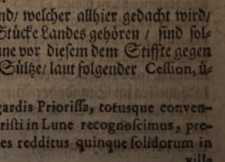 nd/ welcher allhier gedacht wird/
Stücke Landes gehören/ sind sol-
ne vor diesem dem Stiffte gegen
Sültze/ laut folgender Cession, ü-
gardis Priorissa, totusque conven-
risti in Lune recognoscimus, pro-
es redditus quinque solidorum in